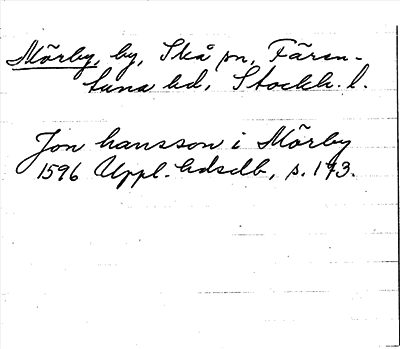 Mörby, by, Skå sn, Fären-
tuna hd, Stockh. l.
Jon hansson i Mörby
1596 Uppl. hdsdb, s. 193.